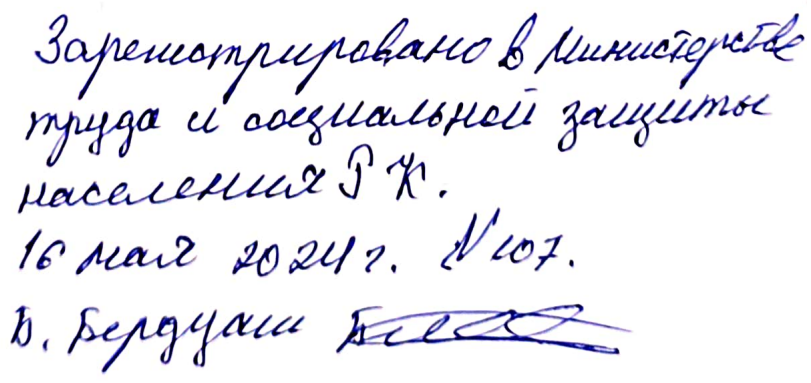 Зарегистрировано в Министерстве
труда и социальной защиты
населения РК.
16 мая 2024 г. N 107.
Б. Бердуаш